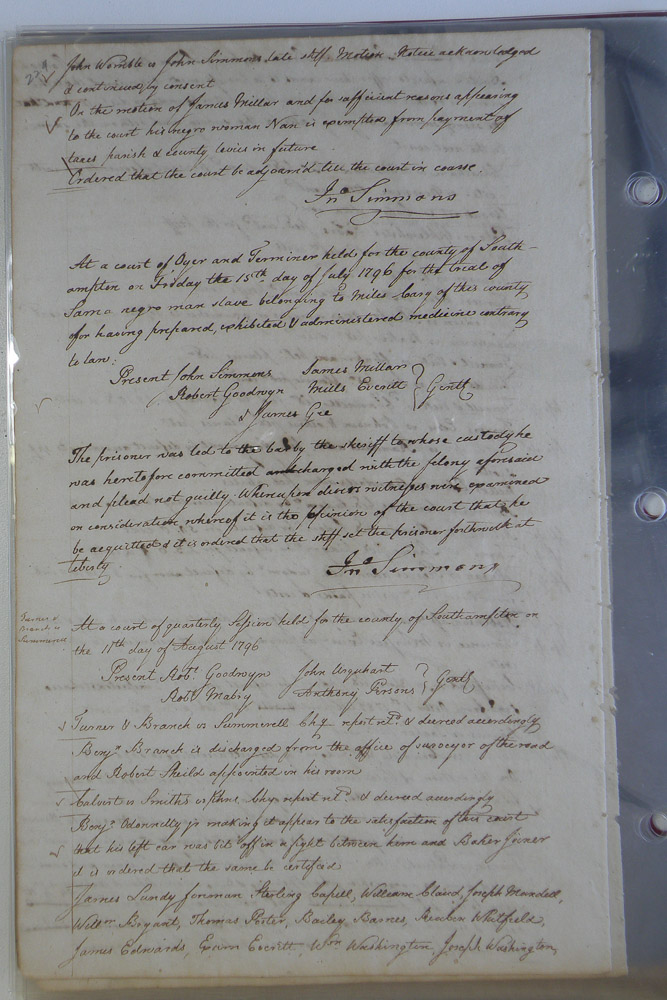 John Womble vs John Simmons late shff. Motion. Notice acknowledged
& continued by consent
On the motion of James Millar and for sufficient reasons appearing
to the court his negro woman Nan is exempted from payment of
taxes parish & county levies in future
Ordered that the court be adjourn'd till the court in course.
Jno Simmons
At a court of Oyer and Terminer held for the county of South-
ampton on Friday the 15th day of July 1796 for the trial of
Sam a negro man slave belonging to Miles Cary of this county
for having prepared, exhibited & administered medicine contrary
to law.
Present John Simmons James Millar
Robert Goodwyn Mills Everitt Gentn
& James Gee
The prisoner was led to the bar by the sheriff to whose custody he
was heretofore committed and charged with the felony aforesaid
and plead not guilty. Whereupon divers witnesses were examined
on consideration whereof it is the opinion of the court that he
be acquitted & it is ordered that the shff set the prisoner forthwith at
liberty
Jno Simmons
Turner &
Branch vs
Summerell
At a court of quarterly Session held for the county of Southampton on
the 11th day of August 1796
Present Robt. Goodwyn John Urquhart
Robt Mabry Anthony Persons Gentn
Turner & Branch vs Summerell Chy report retd. & decreed accordingly
Benjn. Branch is discharged from the office of surveyor of the road
and Robert Sheild appointed in his room
Calvert vs Smith's Chy report retd. & decreed accordingly
Benjn. Odonnelly jr making it appear to the satisfaction of this court
that his left ear was bit off in a fight between him and Baker Joiner
it is ordered that the same be certified
James Lundy foreman Sterling Capell, William Claud, Joseph Mundell,
Willm Bryant, Thomas Porter, Bailey Barnes, Reuben Whitfield,
James Edwards, Exum Everitt, Wm Washington, Joseph Washington,